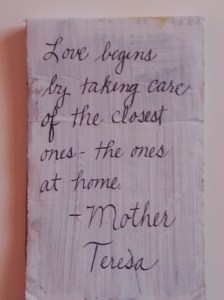 Love begins
by taking care
of the closest
ones - the ones
at home.
- Mother
Teresa